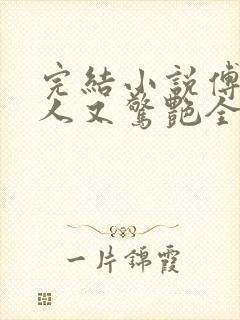 完結小說傅
人又驚艷全
一片錦霞